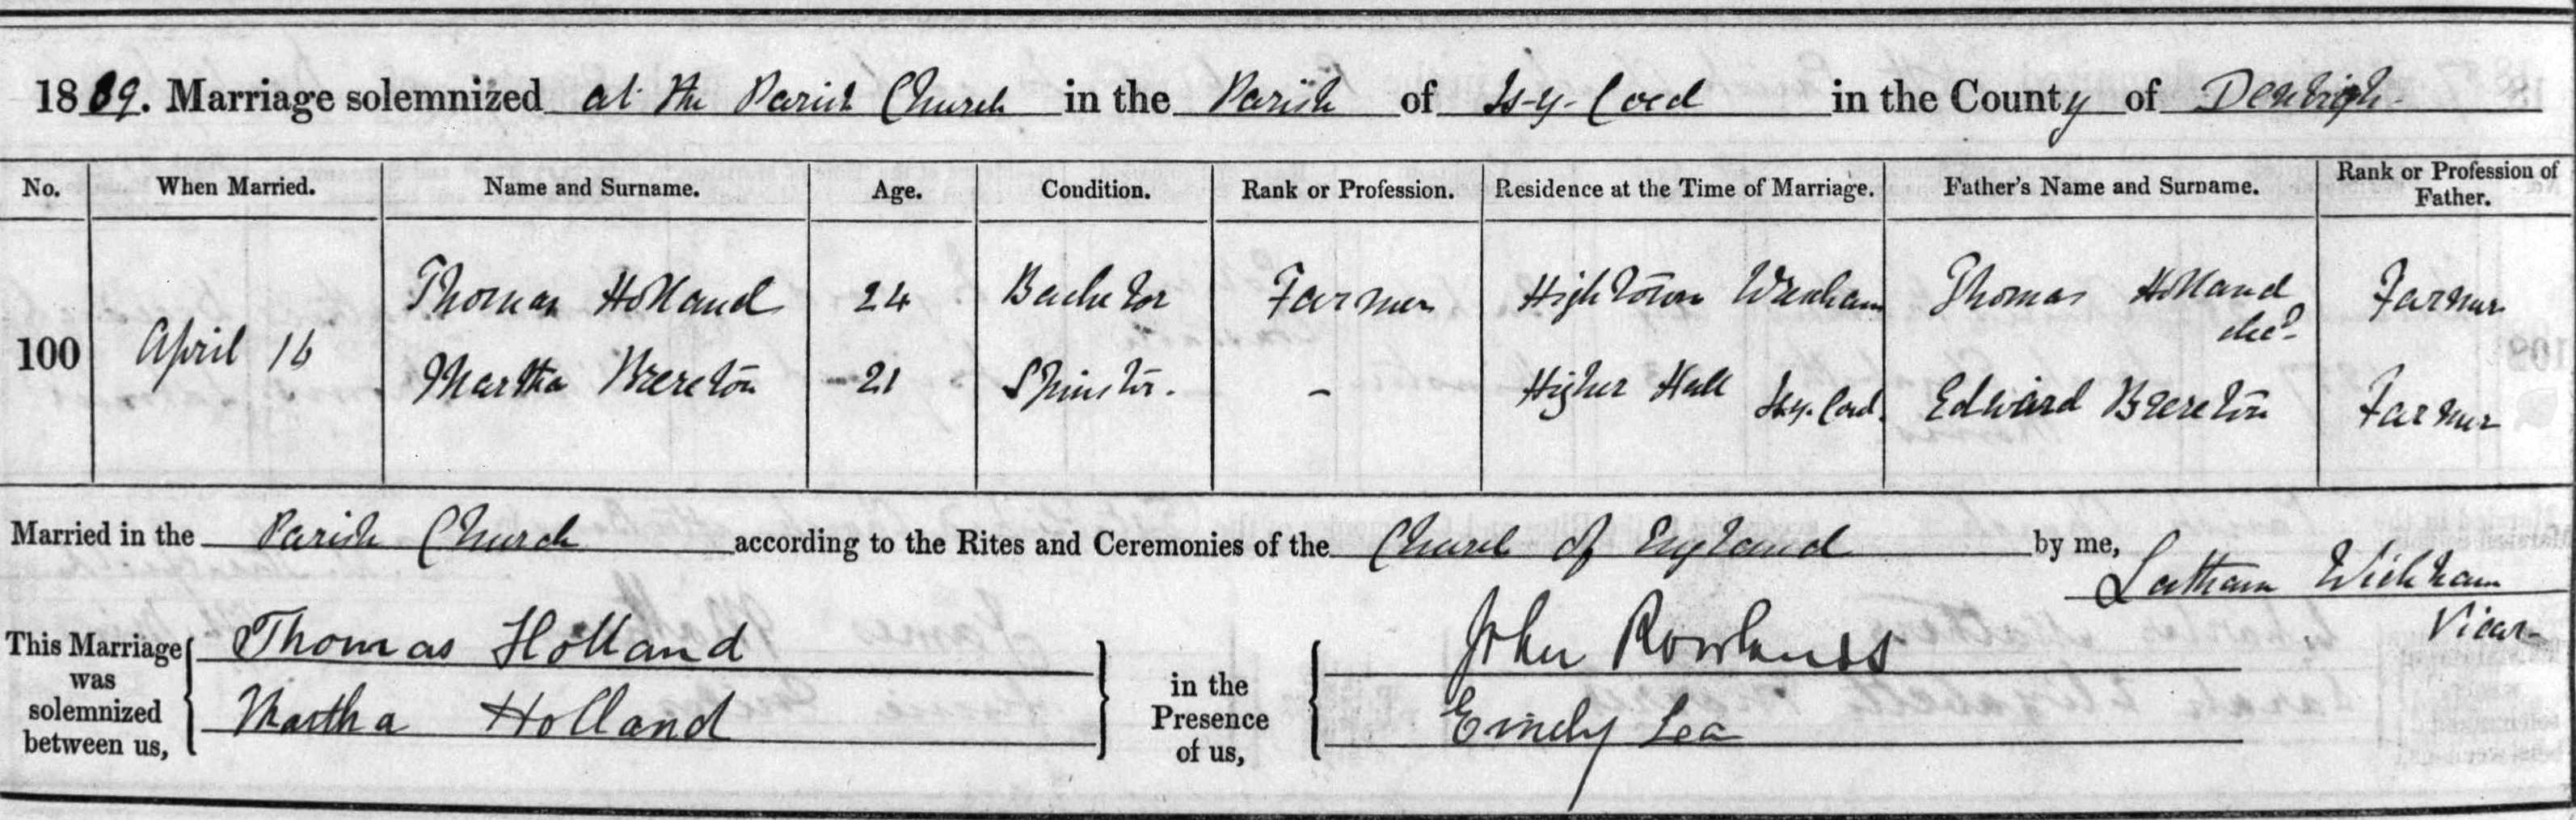 1889. Marriage solemnized at the Parish Church in the Parish of Is-y-Coed in the County of Denbigh
No. When Married. Name and Surname. Age. Condition. Rank or Profession. Residence at the Time of Marriage. Father's Name and Surname. Rank or Profession of Father.
100 April 16
Thomas Holland 24 Bachelor Farmer Hightown Wrexham Thomas Holland decd Farmer
Martha Brereton 21 Spinster. - Higher Hall Is-y-Coed. Edward Brereton Farmer
Married in the Parish Church according to the Rites and Ceremonies of the Church of England by me,
Latham Wickham
Vicar
This Marriage was solemnized between us,
Thomas Holland
Martha Holland
in the Presence of us,
John Rowlands
Emily Lea